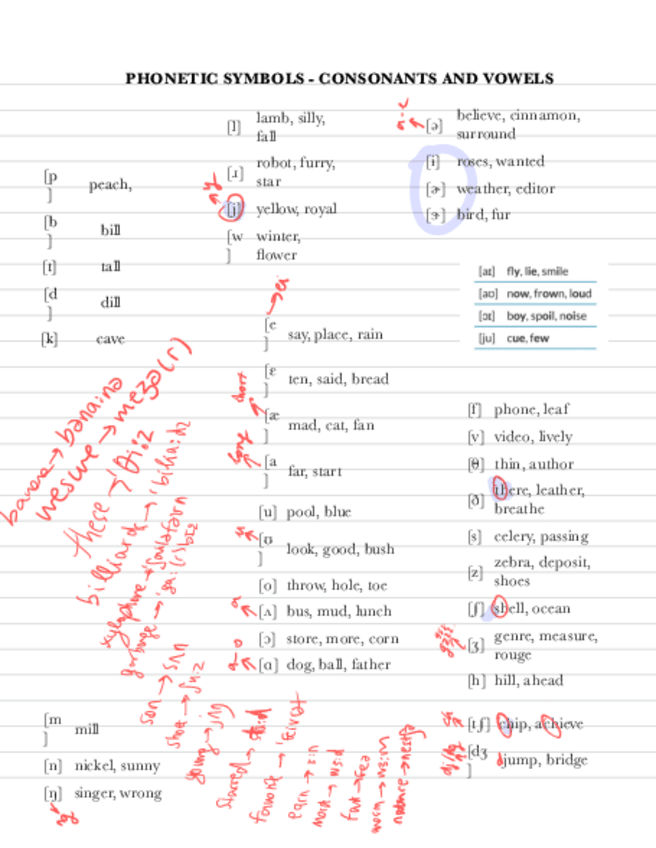 PHONETIC SYMBOLS - CONSONANTS AND VOWELS
[p] peach,
[b] bill
[t] tall
[d] dill
[k] cave
[l] lamb, silly,
fall
[ɹ] robot, furry,
star
[j] yellow, royal
[w] winter,
flower
[ə] believe, cinnamon,
surround
[ɨ] roses, wanted
[ɚ] weather, editor
[ɝ] bird, fur
[aɪ] fly, lie, smile
[aʊ] now, frown, loud
[ɔɪ] boy, spoil, noise
[ju] cue, few
[e] say, place, rain
[ɛ] ten, said, bread
short
[æ] mad, cat, fan
long
[a] far, start
[u] pool, blue
[ʊ] look, good, bush
[o] throw, hole, toe
[ʌ] bus, mud, lunch
[ɔ] store, more, corn
[ɑ] dog, ball, father
[f] phone, leaf
[v] video, lively
[θ] thin, author
[ð] there, leather,
breathe
[s] celery, passing
[z] zebra, deposit,
shoes
[ʃ] shell, ocean
[ʒ] genre, measure,
rouge
[h] hill, ahead
[tʃ] chip, achieve
[dʒ] jump, bridge
[m] mill
[n] nickel, sunny
[ŋ] singer, wrong
ng
banana →
mesure →
these → ðiːz
billiards →
xylophone →
garbage →
son → sʌn
shoe →
young → jʌŋ
favorit →
earn → ɜːn
worm → wɜːm